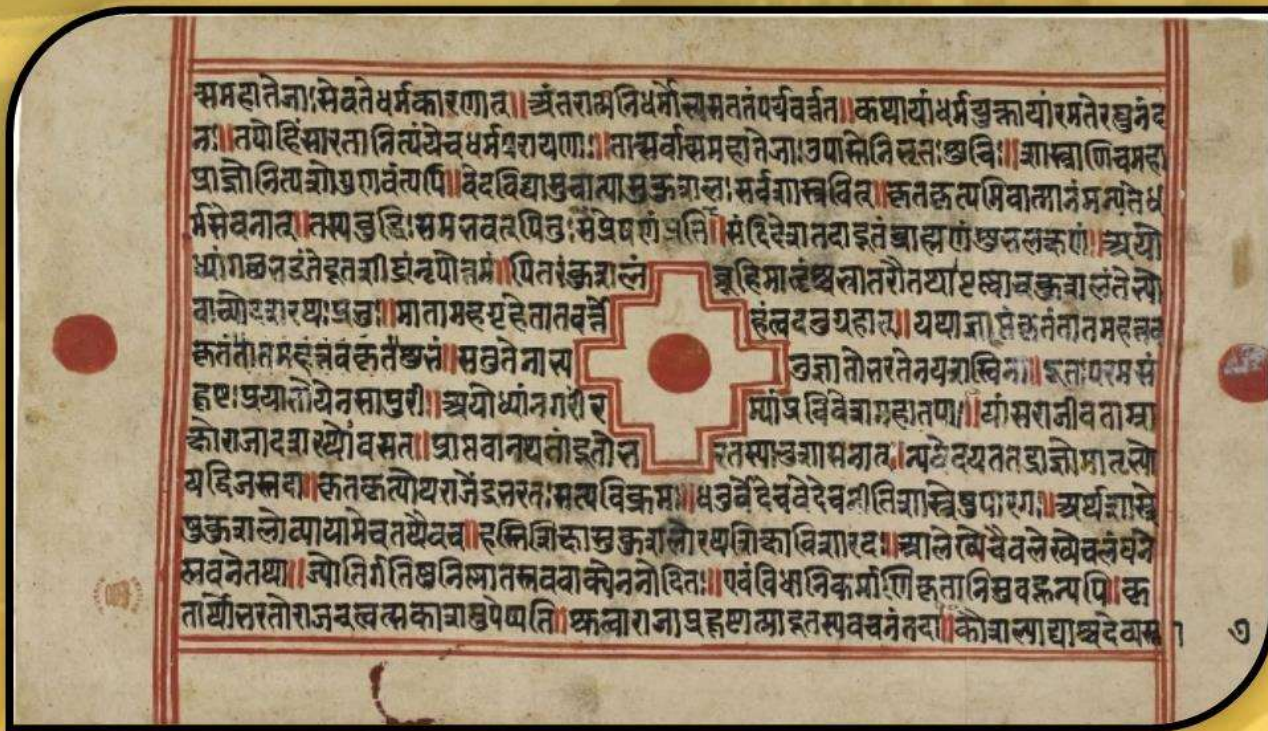 त्समहातेजाःसेवतेधर्मकारणात्॥अंतरात्मनिधर्मोस्यसततंपर्यवर्त्तत॥कथायांधर्मयुक्तायांरमतेरघुनंद
नः॥तपोहिंसारतानित्यंयेचधर्मपरायणाः॥तान्सर्वान्समहातेजाःउपास्तेनिभृतःशुचिः॥शास्त्राणिचमहा
प्राज्ञोनित्यशोगुणवंत्यपि॥वेदविद्यासुचान्यासुकुशलःसर्वशास्त्रवित्॥कृतकृत्यमिवात्मानंमन्यतेध
र्मसेवनात्॥तस्यबुद्धिःसमभवत्पितुःसंप्रेषणंप्रति॥संदिदेशतदादूतंब्राह्मणंशुभलक्षणं॥अयो
ध्यांगछभद्रंतेदूतशीघ्रंनृपोत्तमं॥पितरंकुशलं ब्रूहिमातॄश्चभ्रातरौतथापृष्ट्वाचकुशलंतेभ्यो
वाच्योदशरथःप्रभुः॥मातामहगृहेतात हंत्वदनुग्रहात्॥यथाज्ञाप्तंकृतंतातमहत्तव
कृतंतातमहत्तवकृतंशुभं॥सतुतेनाभ्य नुज्ञातोभरतेनयशस्विना॥दूतःपरमसं
हृष्टःप्रयातोयेनसापुरी॥अयोध्यांनगरींर म्यांप्रविवेशमहातपाः॥यांसराजीवताम्रा
क्षोराजादशरथोवसत्॥प्राप्तवानथतांदूतोभ रतस्यानुशासनात्॥न्यवेदयततद्राज्ञोमातृभ्यो
यद्द्विजस्तदा॥कृतकृत्योथराजेंद्रभरतःसत्यविक्रमः॥धनुर्वेदेचवेदेचनीतिशास्त्रेषुपारगः॥अर्थशास्त्रे
षुकुशलोव्यायामेचतथैवच॥हस्तिशिक्षासुकुशलोरथशिक्षाविशारदः॥आलेख्येचैवलेख्येचलंघने
प्लवनेतथा॥ज्योतिर्गतिषुनिष्णातस्तववाक्येननोदितः॥एवंविधानिकर्माणिकृतानिसुबहून्यपि॥कृ
तार्थोभरतोराजन्त्वत्सकाशमुपेष्यति॥श्रुत्वाराजाप्रहृष्टात्मादूतस्यवचनंतदा॥कौशल्याद्याश्चदेव्यस्